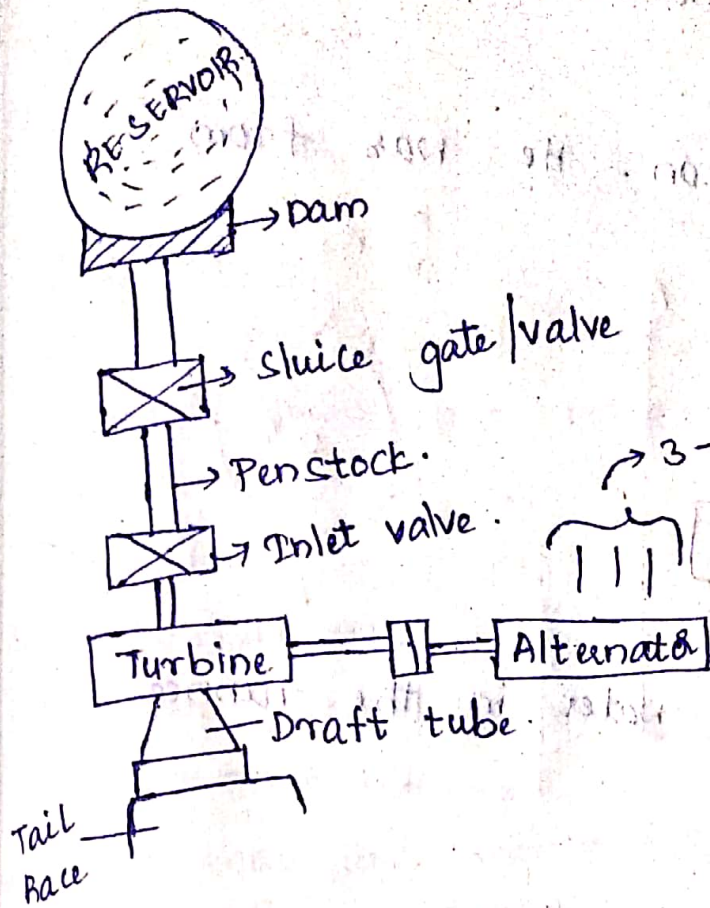 RESERVOIR
Dam
Sluice gate/valve
Penstock.
Inlet valve.
3-
Turbine
Alternator
Draft tube.
Tail
Race